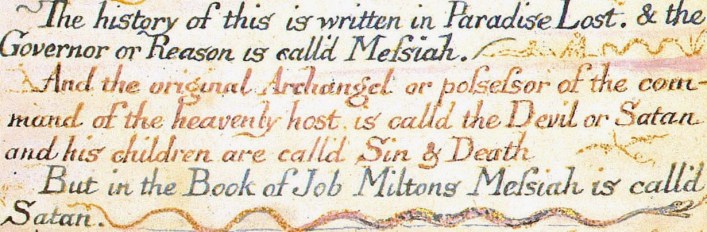 The history of this is written in Paradise Lost. & the
Governor or Reason is call'd Meſsiah.
And the original Archangel or poſseſsor of the com-
mand of the heavenly host is calld the Devil or Satan
and his children are call'd Sin & Death
But in the Book of Job Miltons Meſsiah is call'd
Satan.